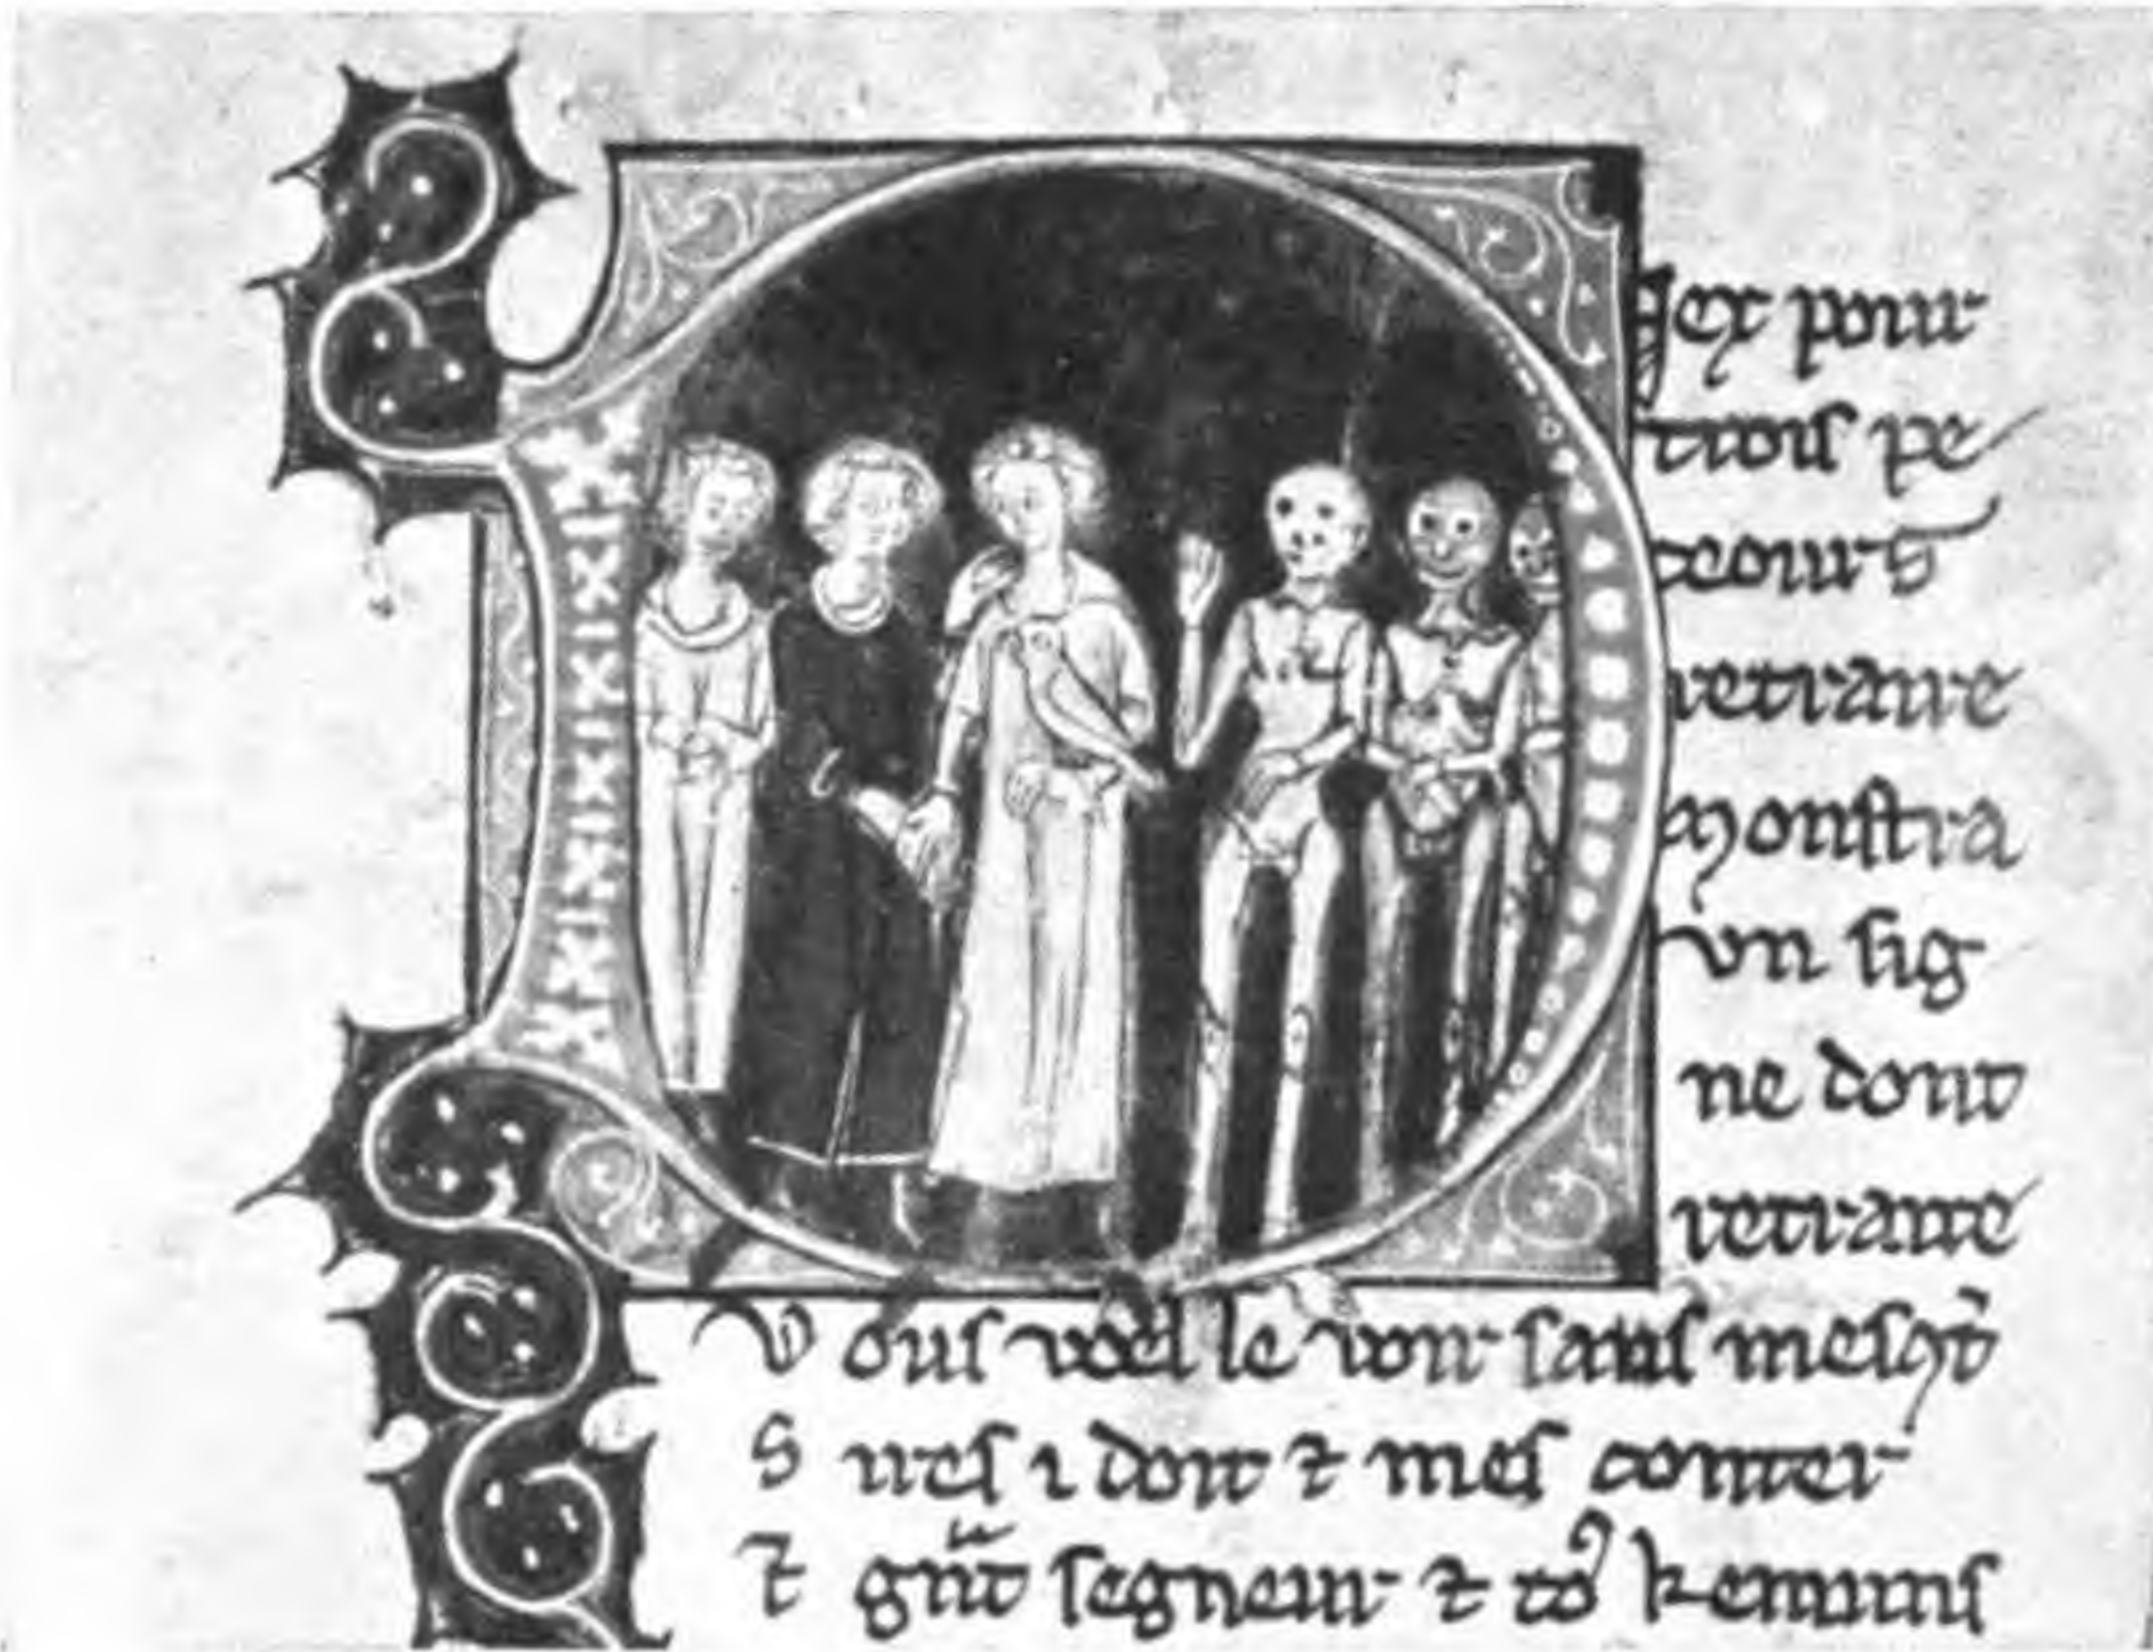 Iex pour
trois pe
ceours
retraire
Monstra
vn sig
ne dont
retraire
V ous voel le voir sans
⁊ mes conter
⁊ segneur ⁊ toꝰ kemuns